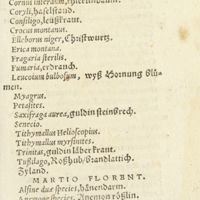 Cornus
Coryli, haselstaud.
Consiligo, leüßkraut.
Crocus montanus.
Elleborus niger, Christwurtz.
Erica montana.
Fragaria sterilis.
Fumaria, erdrauch.
Leucoium bulbosum, wyß Hornung Blů-
men.
Myagrut.
Petasites.
Saxifraga aurea, guldin steinbrech.
Senecio.
Tithymallus Helioscopius.
Tithymallus myrsinites.
Trinitas, guldin läberkraut.
Tußilago, Roßhůb / Brandlattich.
Zyland.
MARTIO FLORENT.
Alsine duæ species, hänendarm.
species, Anemon rößlin.